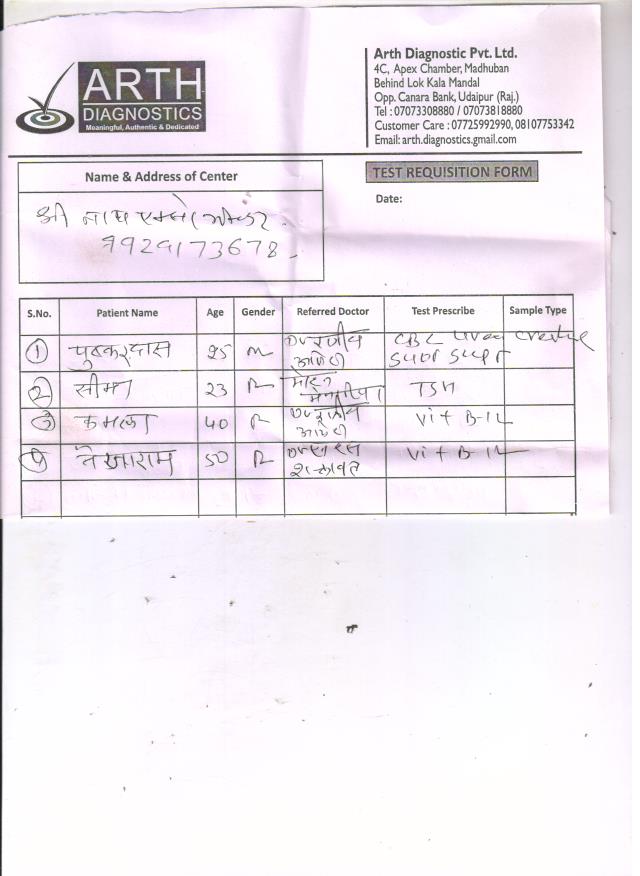 ARTH
DIAGNOSTICS
Meaningful, Authentic & Dedicated
Arth Diagnostic Pvt. Ltd.
4C, Apex Chamber, Madhuban
Behind Lok Kala Mandal
Opp. Canara Bank, Udaipur (Raj.)
Tel : 07073308880 / 07073818880
Customer Care : 07725992990, 08107753342
Email: arth.diagnostics.gmail.com
Name & Address of Center
TEST REQUISITION FORM
Date:
श्री नाथ
9929173678
S.No. Patient Name Age Gender Referred Doctor Test Prescribe Sample Type
1 पुष्करदास 25 m CBC urea
2 सीमा 23 F TSH
3 कमला 40 F Vit B-12
4 50 F Vit B-12